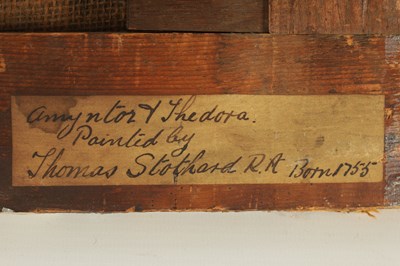 Amyntor & Thedora.
Painted by
Thomas Stothard R.A Born 1755